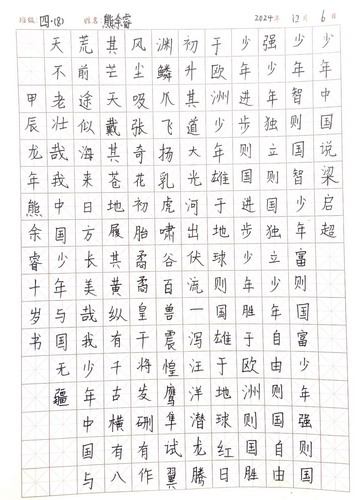 班级 四·(8) 姓名 熊余睿 2024年 12月 6日
少年中国说梁启超
少年智则国智少年富则国富少年强则国
强少年独立则国独立少年自由则国自由
少年进步则国进步少年胜于欧洲则国胜
于欧洲少年雄于地球则国雄于地球红日
初升其道大光河出伏流一泻汪洋潜龙腾
渊鳞爪飞扬乳虎啸谷百兽震惶鹰隼试翼
风尘吸张奇花初胎矞矞皇干将发硎有作
其芒天戴其苍地履其黄纵有千古横有八
荒前途似海来日方长美哉我少年中国与
天不老壮哉我中国少年与国无疆
甲辰龙年熊余睿十岁书